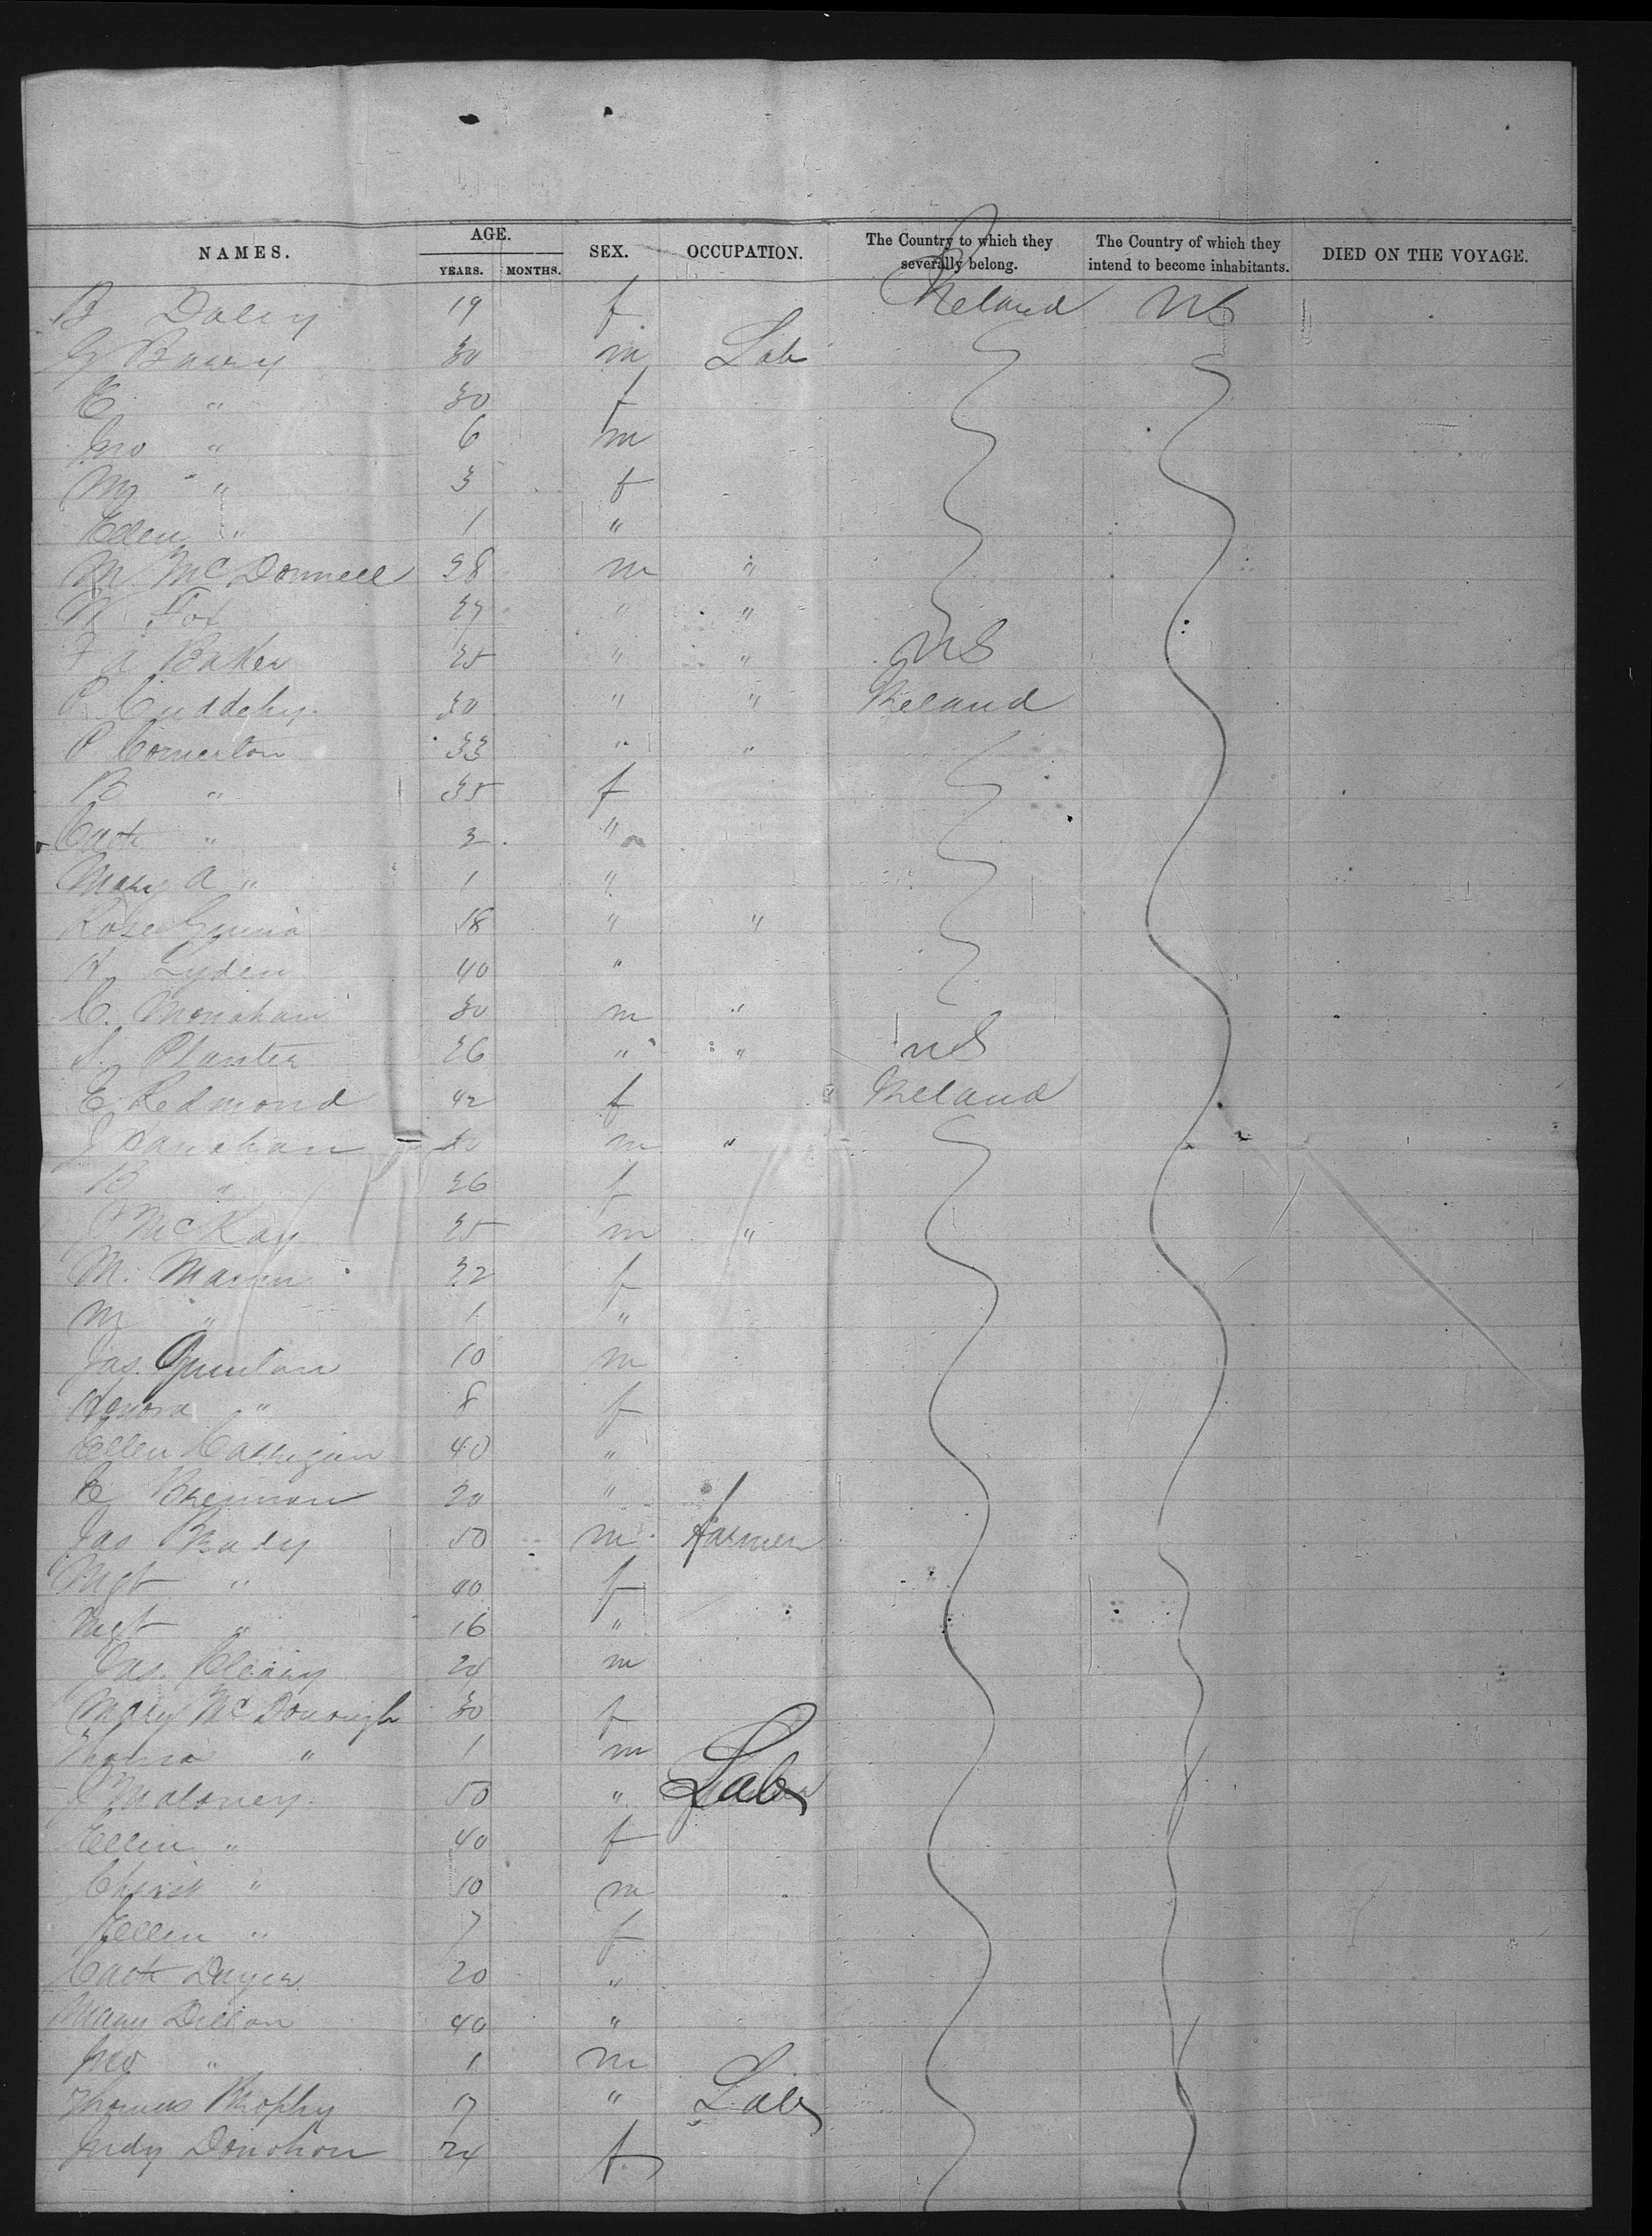 NAMES. AGE. SEX. OCCUPATION. The Country to which they severally belong. The Country of which they intend to become inhabitants. DIED ON THE VOYAGE.
YEARS. MONTHS.
B Daley 19 f Ireland US
Barry 30 m Lab
E " 30 f
Jno " 6 m
Mg " 3 f
Ellen " 1 "
M McDonnell 28 m "
Fox 27 " "
A Baker 25 " " US
P Cuddehy 30 " " Ireland
P Comerton 33 " "
B " 35 f
Cath " 2 "
Mary A " 1 "
Rose 18 " "
Lyden 40 "
C. Monahan 30 m "
S. Planter 26 " " US
E Redmond 42 f Ireland
J m "
B " 26 f
McKay 25 m "
M. Mason 22 f
M " 1 "
Jas. Quinlan 10 m
Honora " 8 f
Ellen Carrigan 40 "
E Brennan 20 "
Jas Brady 50 m Farmer
Mgt " 40 f
Mgt " 16 "
Jas. Cleary 20 m
Mary McDonough 30 f
Thomas " 1 m
J Maloney 50 " Lab
Ellen " 40 f
Christ " 10 m
Ellen " 7 f
Cath Dwyer 20 "
Mary Dillon 40 "
Jno " 1 m
Thomas Brophy " Lab
Judy Donohon 24 f